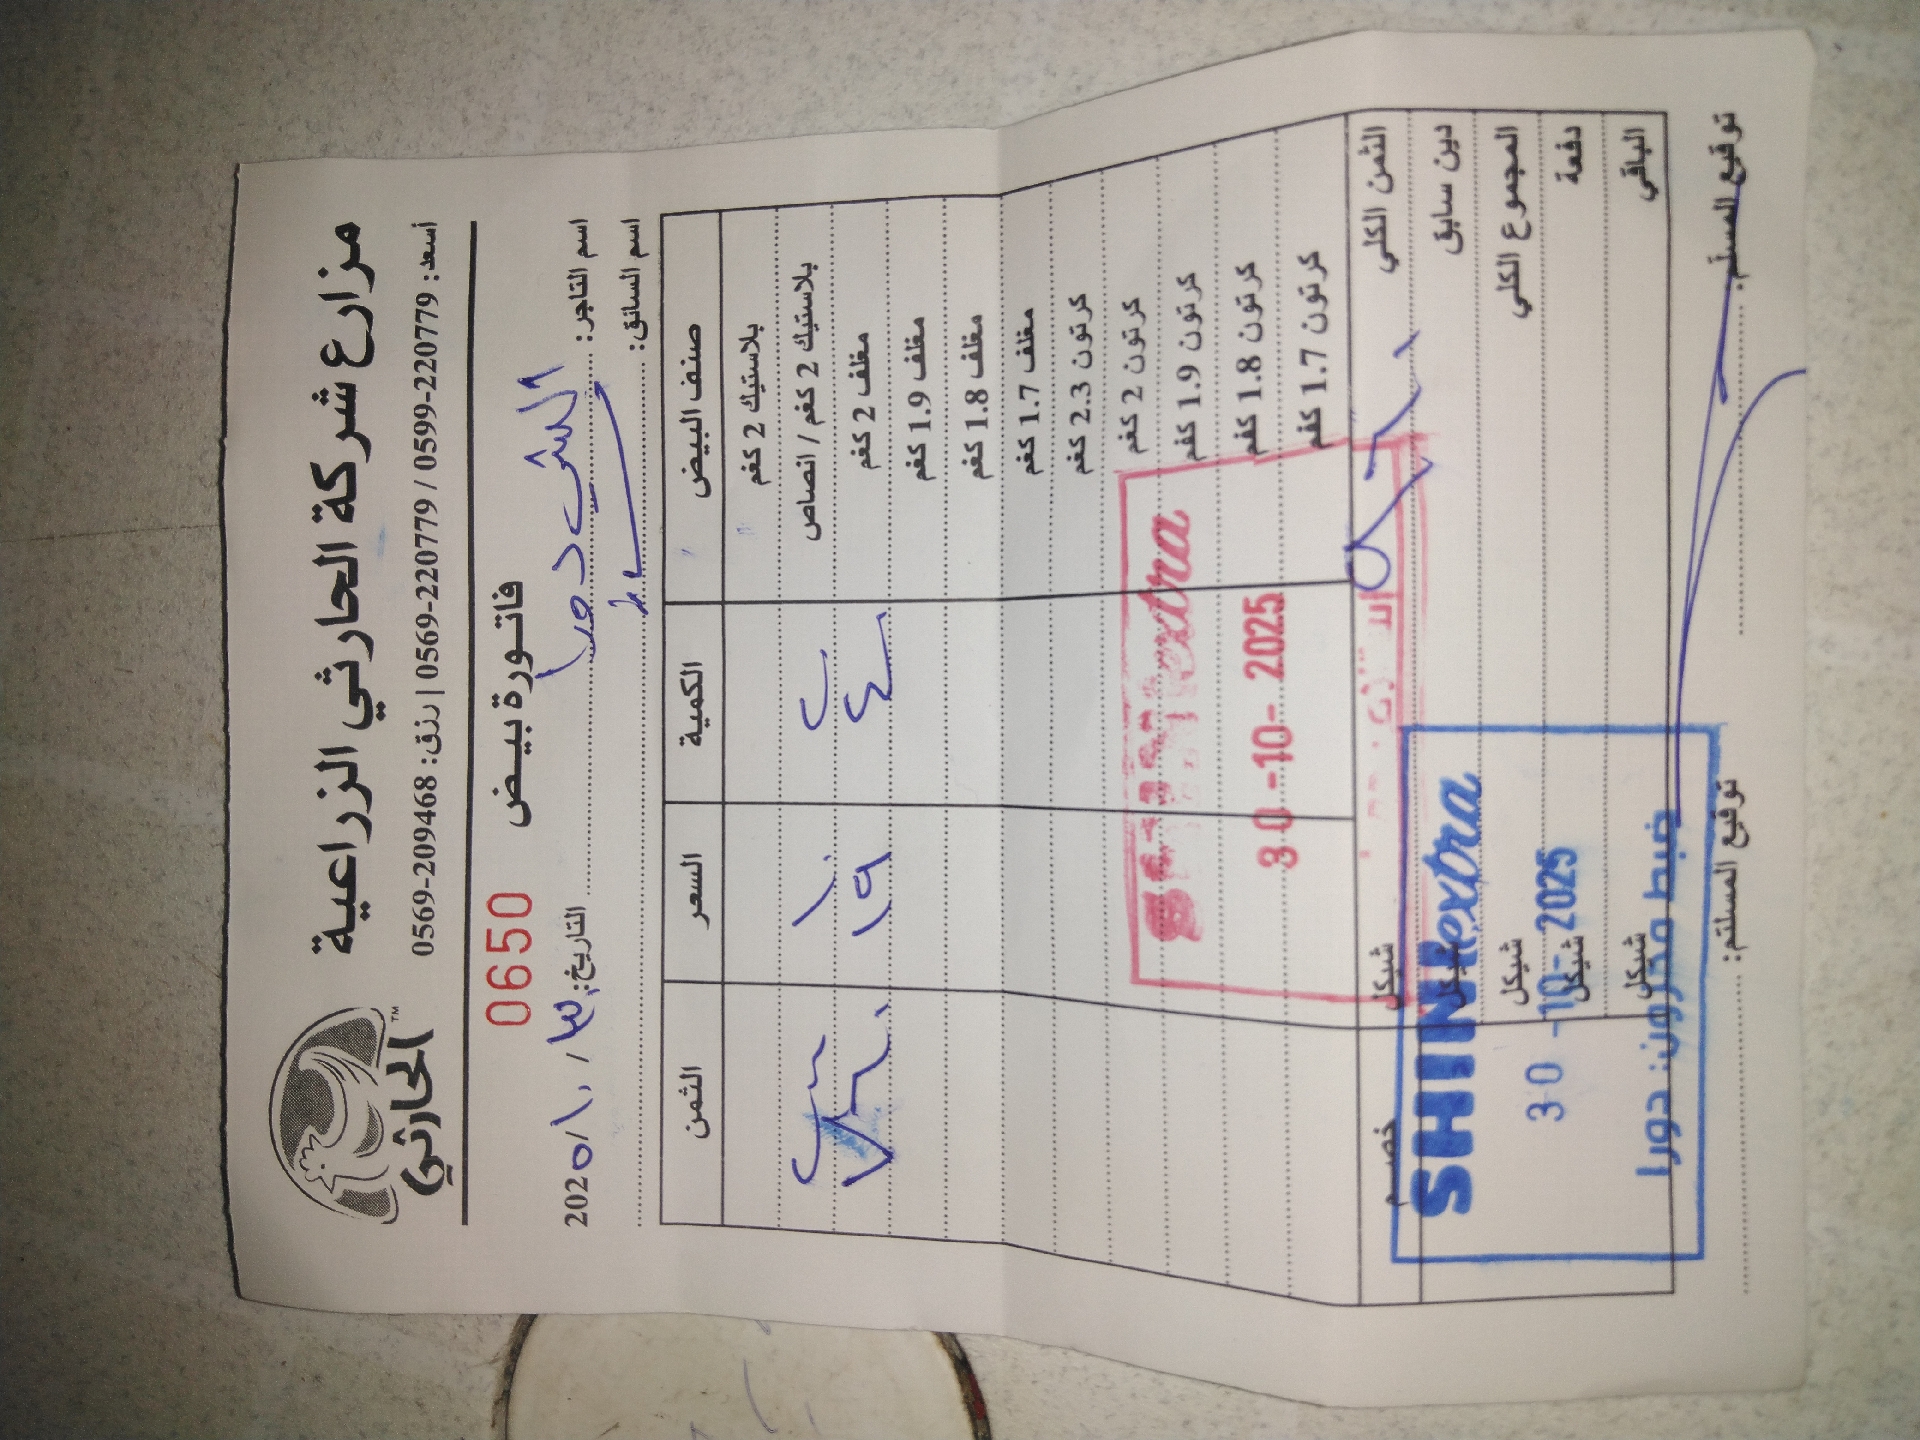 مزارع شركة الحارثي الزراعية
أسعد: 0599-220779 / 0569-220779 | رزق: 0569-209468
الحارثي™
فاتورة بيض
0650
اسم التاجر: الشيب دورا
التاريخ: ٣٠ / ١٠ / 202٥
اسم السائق:
صنف البيض الكمية السعر الثمن
بلاستيك 2 كغم
بلاستيك 2 كغم / انصاص ٢٠ ١٠
مغلف 2 كغم ٤٠ ١٩
مغلف 1.9 كغم
مغلف 1.8 كغم
مغلف 1.7 كغم
كرتون 2.3 كغم
كرتون 2 كغم
كرتون 1.9 كغم
كرتون 1.8 كغم
كرتون 1.7 كغم
extra
30 -10- 2025
الثمن الكلي شيكل خصم
دين سابق شيكل
المجموع الكلي شيكل
دفعة شيكل
الباقي شيكل
SHINI extra
30 -10- 2025
ضبط مخزون: دورا
توقيع المسلّم: توقيع المستلم: